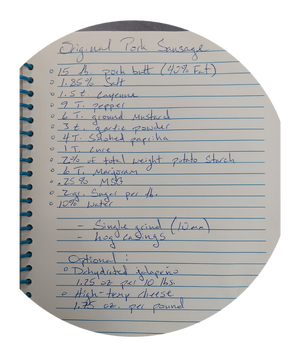 Original Pork Sausage
15 lb. pork butt (40% Fat)
1.85% Salt
1.5 t. Cayenne
9 T. pepper
6 T. ground Mustard
3 t. garlic powder
4 T. Smoked paprika
1 T. Cure
2% of total weight potato Starch
6 T. Marjoram
.25% MSG
2 g. Sugar per lb.
10% Water
- Single grind (10mm)
- hog casings
Optional:
Dehydrated jalapeño
1.25 oz per 10 lbs.
High-temp cheese
1.75 oz. per pound